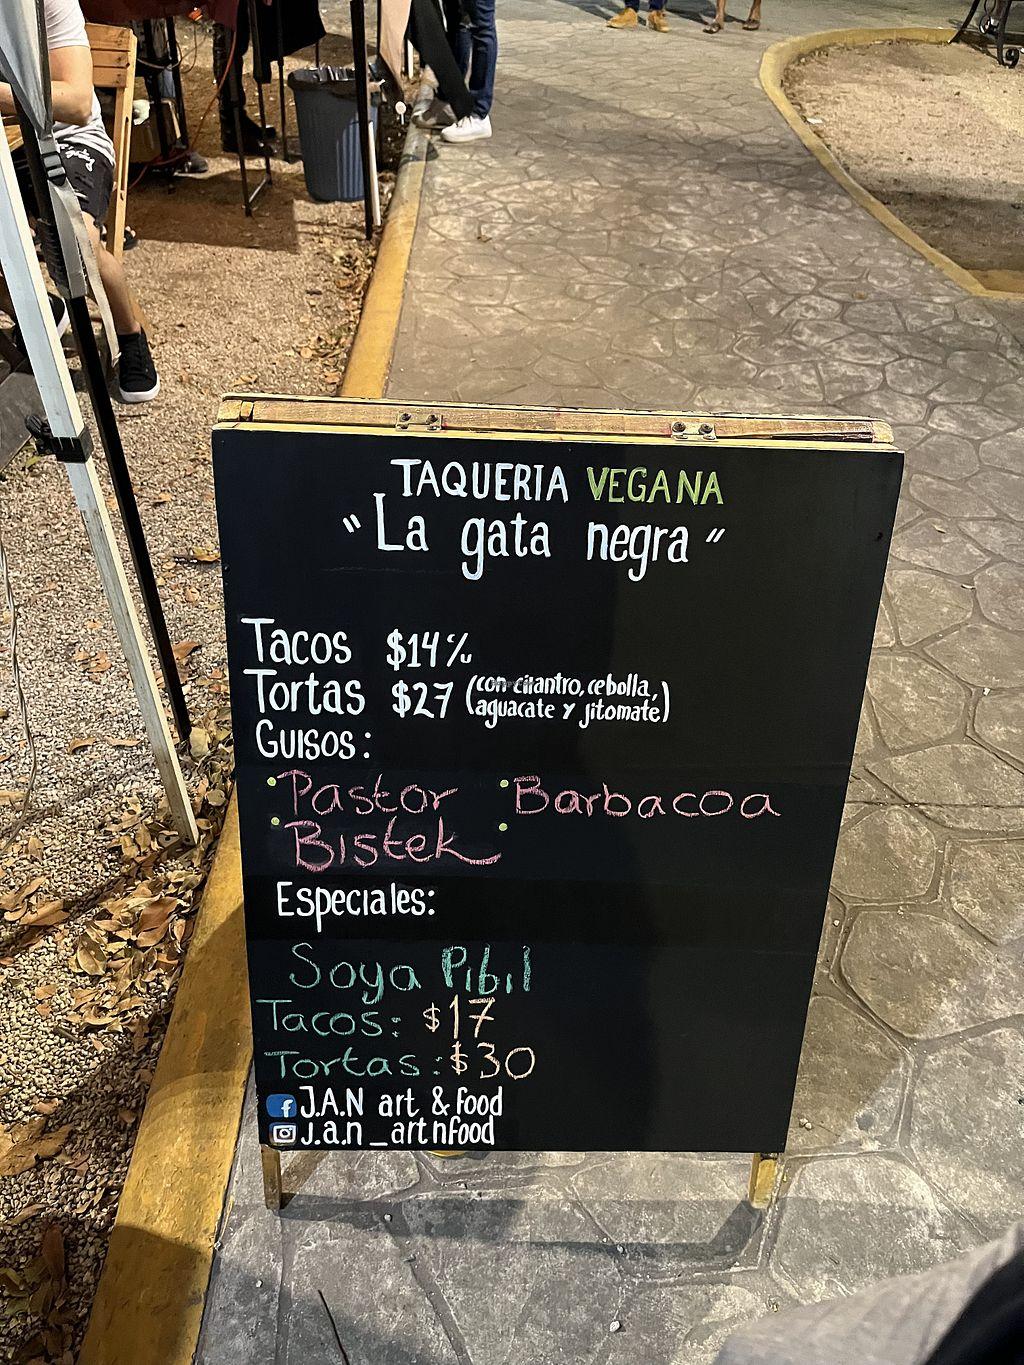 TAQUERIA VEGANA
"La gata negra"
Tacos $14 c/u
Tortas $27 (con cilantro, cebolla, aguacate y jitomate)
Guisos:
• Pastor • Barbacoa
• Bistek •
Especiales:
Soya Pibil
Tacos: $17
Tortas: $30
J.A.N art & food
J.a.n_artnfood